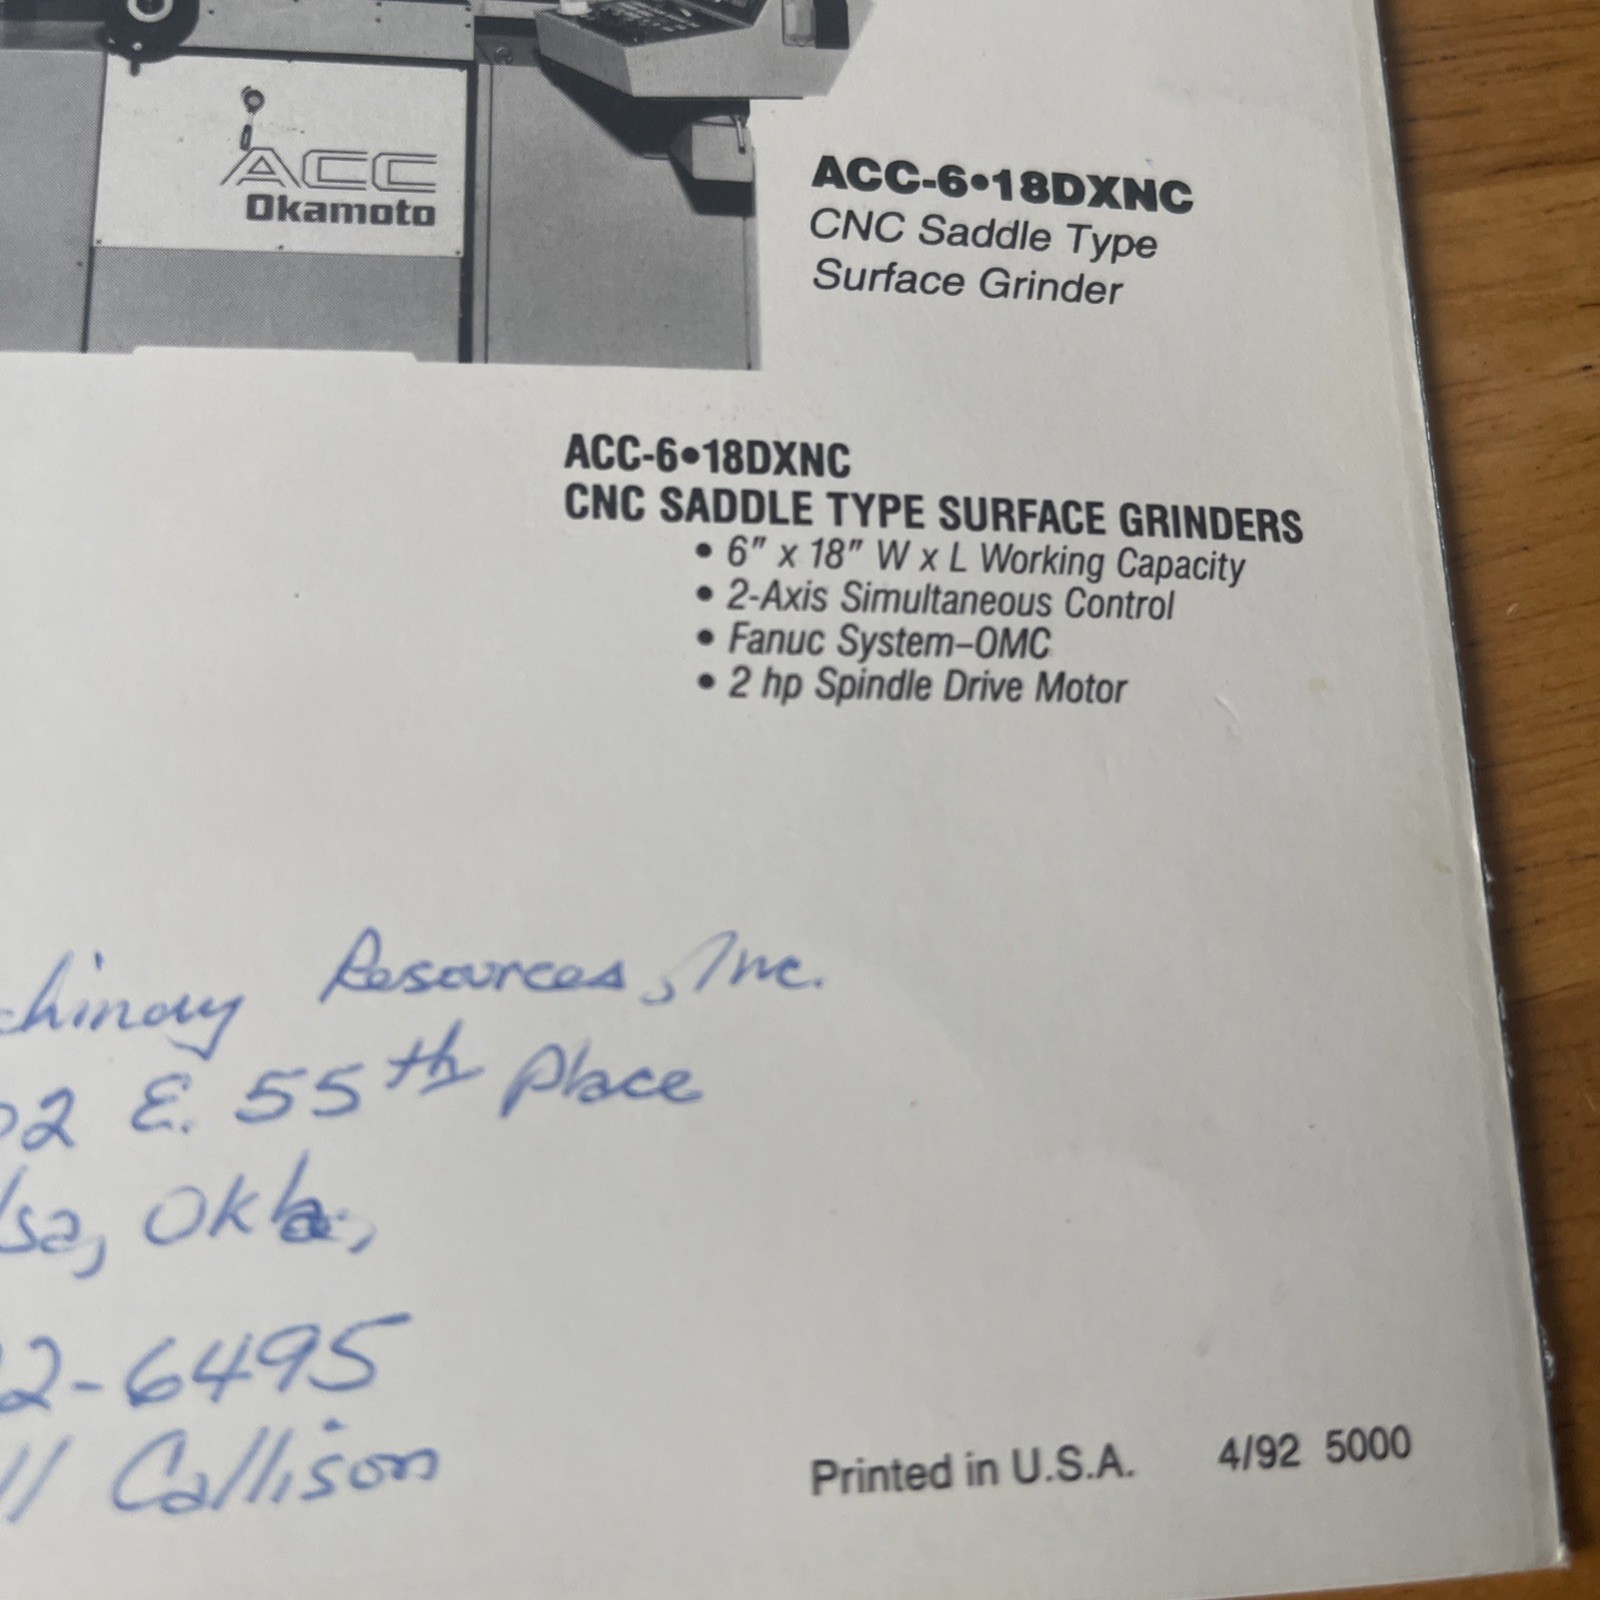 ACC
Okamoto
ACC-6•18DXNC
CNC Saddle Type
Surface Grinder
ACC-6•18DXNC
CNC SADDLE TYPE SURFACE GRINDERS
• 6" x 18" W x L Working Capacity
• 2-Axis Simultaneous Control
• Fanuc System–OMC
• 2 hp Spindle Drive Motor
chinery Resources, Inc.
02 E. 55th Place
lsa, Okla.,
2-6495
ll Callison
Printed in U.S.A. 4/92 5000